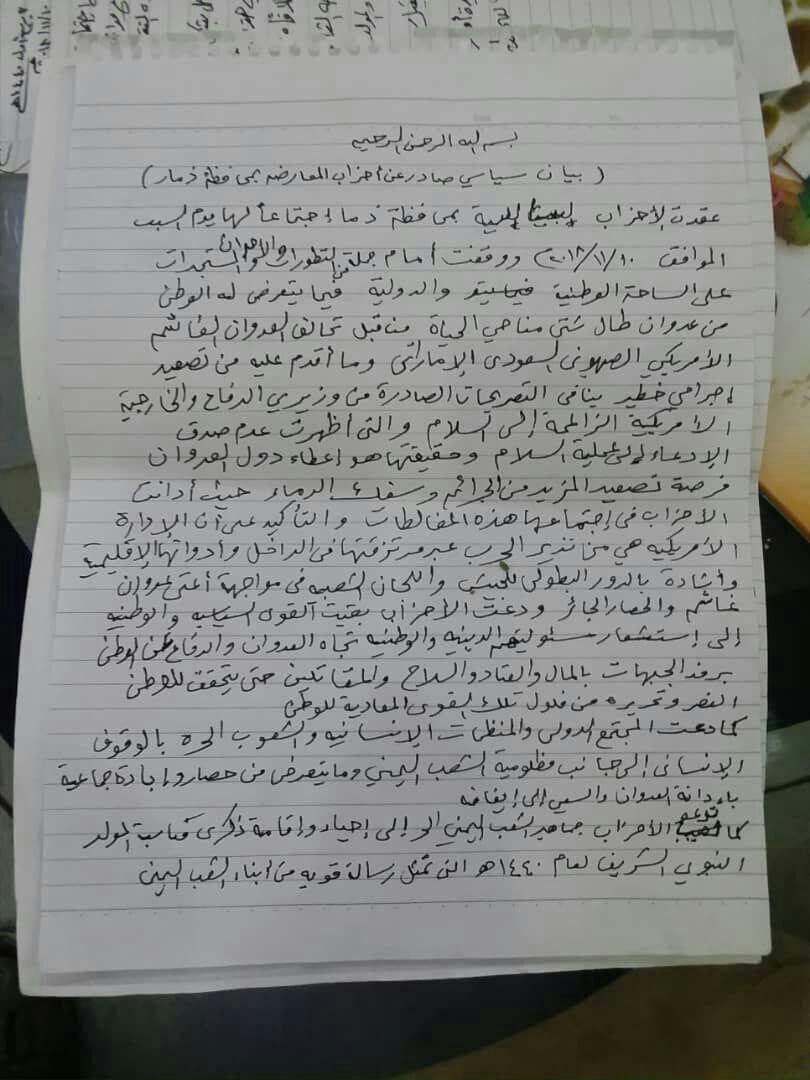 بسم الله الرحمن الرحيم
(بيان سياسي صادر عن أحزاب المعارضه بمحافظة ذمار)
عقدت الأحزاب السياسية بمحافظة ذمار إجتماعاً لها يوم السبت
الموافق ١٠/١١/٢٠١٨م ووقفت أمام جملة من التطورات والأحداث والمستجدات
على الساحة الوطنية والدولية فيما يتعرض له الوطن
من عدوان طال شتى مناحي الحياة من قبل تحالف العدوان الغاشم
الأمريكي الصهيوني السعودي الإماراتي وما أقدم عليه من تصعيد
إجرامي خطير ينافي التصريحات الصادرة من وزيري الدفاع والخارجية
الأمريكية الزاعمة إلى السلام والتي أظهرت عدم صدق
الإدعاء إلى عملية السلام وحقيقتها هو إعطاء دول العدوان
فرصة تصعيد المزيد من الجرائم وسفك الدماء حيث أدانت
الأحزاب في إجتماعها هذه المغالطات والتأكيد على أن الإدارة
الأمريكيه هي من تدير الحرب عبر مرتزقتها في الداخل وأدواتها الإقليمية
وأشادة بالدور البطولي للجيش واللجان الشعبيه في مواجهة أعتى عدوان
غاشم والحصار الجائر ودعت الأحزاب بقيت القوى السياسيه والوطنيه
إلى إستشعار مسئوليتهم الدينيه والوطنيه تجاه العدوان والدفاع عن الوطن
برفد الجبهات بالمال والعتاد والسلاح والمقاتلين حتى يتحقق للوطن
النصر وتحريره من فلول تلك القوى المعادية للوطن
كما دعت المجتمع الدولي والمنظمات الإنسانيه والشعوب الحره بالوقوف
الإنساني إلى جانب مظلومية الشعب اليمني وما يتعرض من حصار وإبادة جماعية
بإدانة العدوان والسعي إلى إيقافه
كما تدعو الأحزاب جماهير الشعب اليمني الحر إلى إحياء وإقامة ذكرى مناسبة المولد
النبوي الشريف لعام ١٤٤٠هـ التي تمثل رسالة قويه من أبناء الشعب اليمني